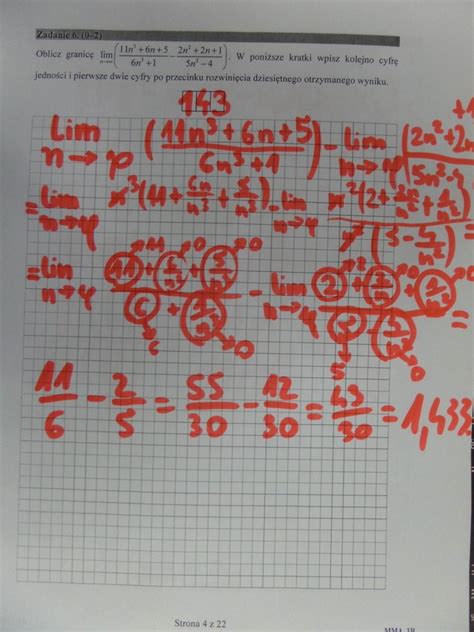 Zadanie 6. (0–2)
Oblicz granicę lim n→∞ (11n³ + 6n + 5 / 6n³ + 1 − 2n² + 2n + 1 / 5n² − 4). W poniższe kratki wpisz kolejno cyfrę
jedności i pierwsze dwie cyfry po przecinku rozwinięcia dziesiętnego otrzymanego wyniku.
143
lim n→ (11n³ + 6n + 5 / 6n³ + 1) − lim n→ (2n² + 2n +1
= lim n→ n³(11 + 6n/n³ + 5/n³) − lim n→ n²(2 + 2n/n² + 1/n²) =
= lim n→ 11 0 0 − lim n→ 2 0 0 =
6 0 5 0
11/6 − 2/5 = 55/30 − 12/30 = 43/30 = 1,433
Strona 4 z 22
MMA_1R